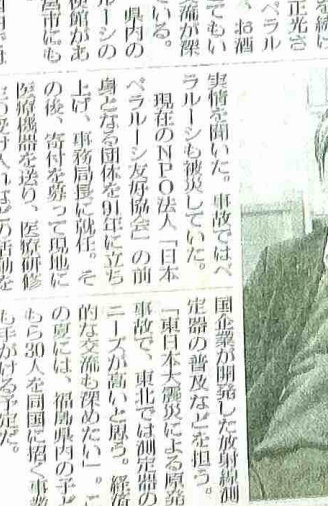 ベラル
、お酒
てもい
流が深
ている。
県内の
ルーシの
使館があ
宮市にも
実情を聞いた。事故ではベ
ラルーシも被災していた。
現在のNPO法人「日本
ベラルーシ友好協会」の前
身となる団体を91年に立ち
上げ、事務局長に就任。そ
の後、寄付を募って現地に
医療機器を送り、医療研修
の受け入れなどの活動を
国企業が開発した放射線測
定器の普及などを担う。
「東日本大震災による原発
事故で、東北では測定器の
ニーズが高いと思う。経済
的な交流も深めたい」。こ
の夏には、福島県内の子ど
もら30人を同国に招く事業
も手がける予定だ。